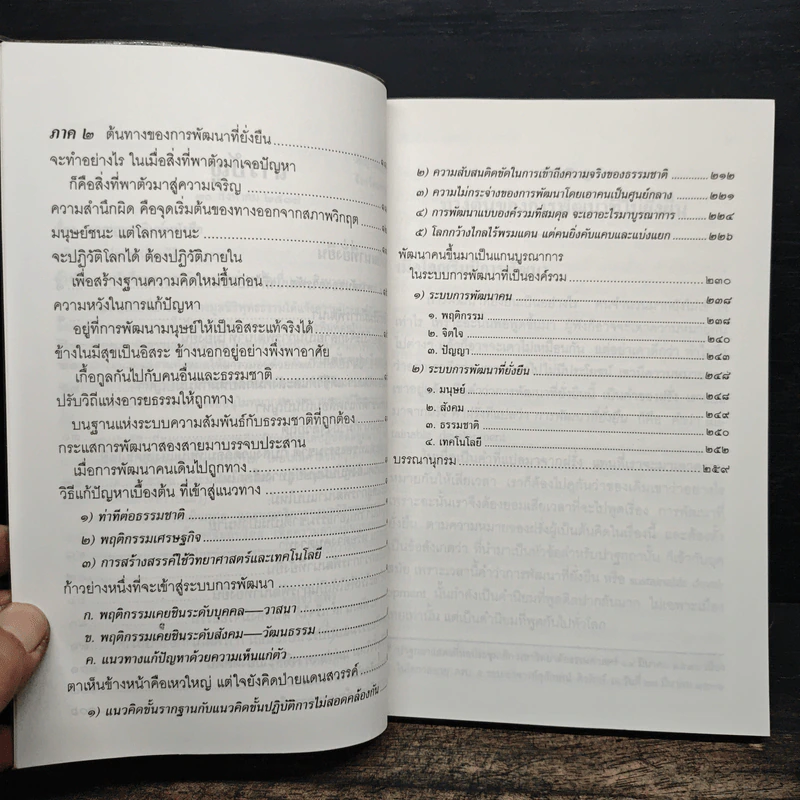 ภาค ๒ ต้นทางของการพัฒนาที่ยั่งยืน
จะทำอย่างไร ในเมื่อสิ่งที่พาตัวมาเจอปัญหา
ก็คือสิ่งที่พาตัวมาสู่ความเจริญ
ความสำนึกผิด คือจุดเริ่มต้นของทางออกจากสภาพวิกฤต
มนุษย์ชนะ แต่โลกหายนะ
จะปฏิวัติโลกได้ ต้องปฏิวัติภายใน
เพื่อสร้างฐานความคิดใหม่ขึ้นก่อน
ความหวังในการแก้ปัญหา
อยู่ที่การพัฒนามนุษย์ให้เป็นอิสระแท้จริงได้
ข้างในมีสุขเป็นอิสระ ข้างนอกอยู่อย่างพึ่งพาอาศัย
เกื้อกูลกันไปกับคนอื่นและธรรมชาติ
ปรับวิถีแห่งอารยธรรมให้ถูกทาง
บนฐานแห่งระบบความสัมพันธ์กับธรรมชาติที่ถูกต้อง
กระแสการพัฒนาสองสายมาบรรจบประสาน
เมื่อการพัฒนาคนเดินไปถูกทาง
วิธีแก้ปัญหาเบื้องต้น ที่เข้าสู่แนวทาง
๑) ท่าทีต่อธรรมชาติ
๒) พฤติกรรมเศรษฐกิจ
๓) การสร้างสรรค์ใช้วิทยาศาสตร์และเทคโนโลยี
ก้าวย่างหนึ่งที่จะเข้าสู่ระบบการพัฒนา
ก. พฤติกรรมเคยชินระดับบุคคล—วาสนา
ข. พฤติกรรมเคยชินระดับสังคม—วัฒนธรรม
ค. แนวทางแก้ปัญหาด้วยความเห็นแก่ตัว
ตาเห็นข้างหน้าคือเหวใหญ่ แต่ใจยังคิดป่ายแดนสวรรค์
๑) แนวคิดขั้นรากฐานกับแนวคิดขั้นปฏิบัติการไม่สอดคล้องกัน
๒) ความสับสนติดขัดในการเข้าถึงความจริงของธรรมชาติ ๒๑๒
๓) ความไม่กระจ่างของการพัฒนาโดยเอาคนเป็นศูนย์กลาง ๒๒๑
๔) การพัฒนาแบบองค์รวมที่สมดุล จะเอาอะไรมาบูรณาการ ๒๒๔
๕) โลกกว้างไกลไร้พรมแดน แต่คนยิ่งคับแคบและแบ่งแยก ๒๒๖
พัฒนาคนขึ้นมาเป็นแกนบูรณาการ
ในระบบการพัฒนาที่เป็นองค์รวม ๒๓๐
๑) ระบบการพัฒนาคน ๒๓๘
๑. พฤติกรรม ๒๓๘
๒. จิตใจ ๒๔๐
๓. ปัญญา ๒๔๓
๒) ระบบการพัฒนาที่ยั่งยืน ๒๔๘
๑. มนุษย์ ๒๔๘
๒. สังคม ๒๔๙
๓. ธรรมชาติ ๒๕๐
๔. เทคโนโลยี ๒๕๒
บรรณานุกรม ๒๕๙